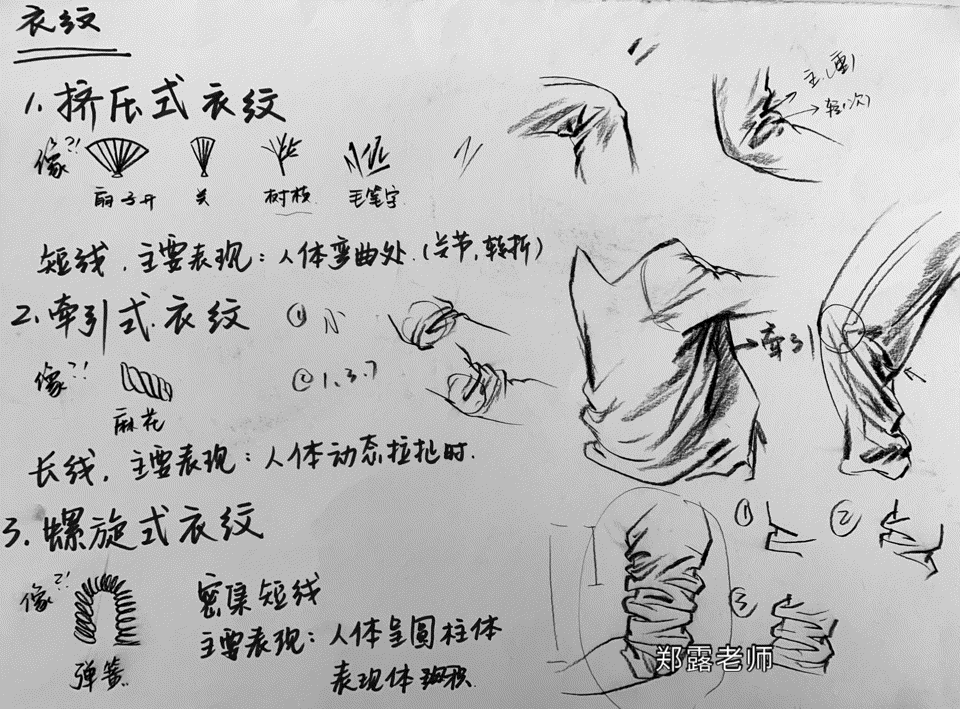 衣纹
1. 挤压式衣纹
像?!
扇子开 关 树枝 毛笔字
短线，主要表现：人体弯曲处.(关节，转折)
主(重)
轻(次)
2. 牵引式衣纹
① 小
② 1、3、7
像?!
麻花
长线，主要表现：人体动态拉扯时.
牵引
3. 螺旋式衣纹
像?!
弹簧
密集短线
主要表现：人体呈圆柱体
表现体积
① ②
③
郑露老师